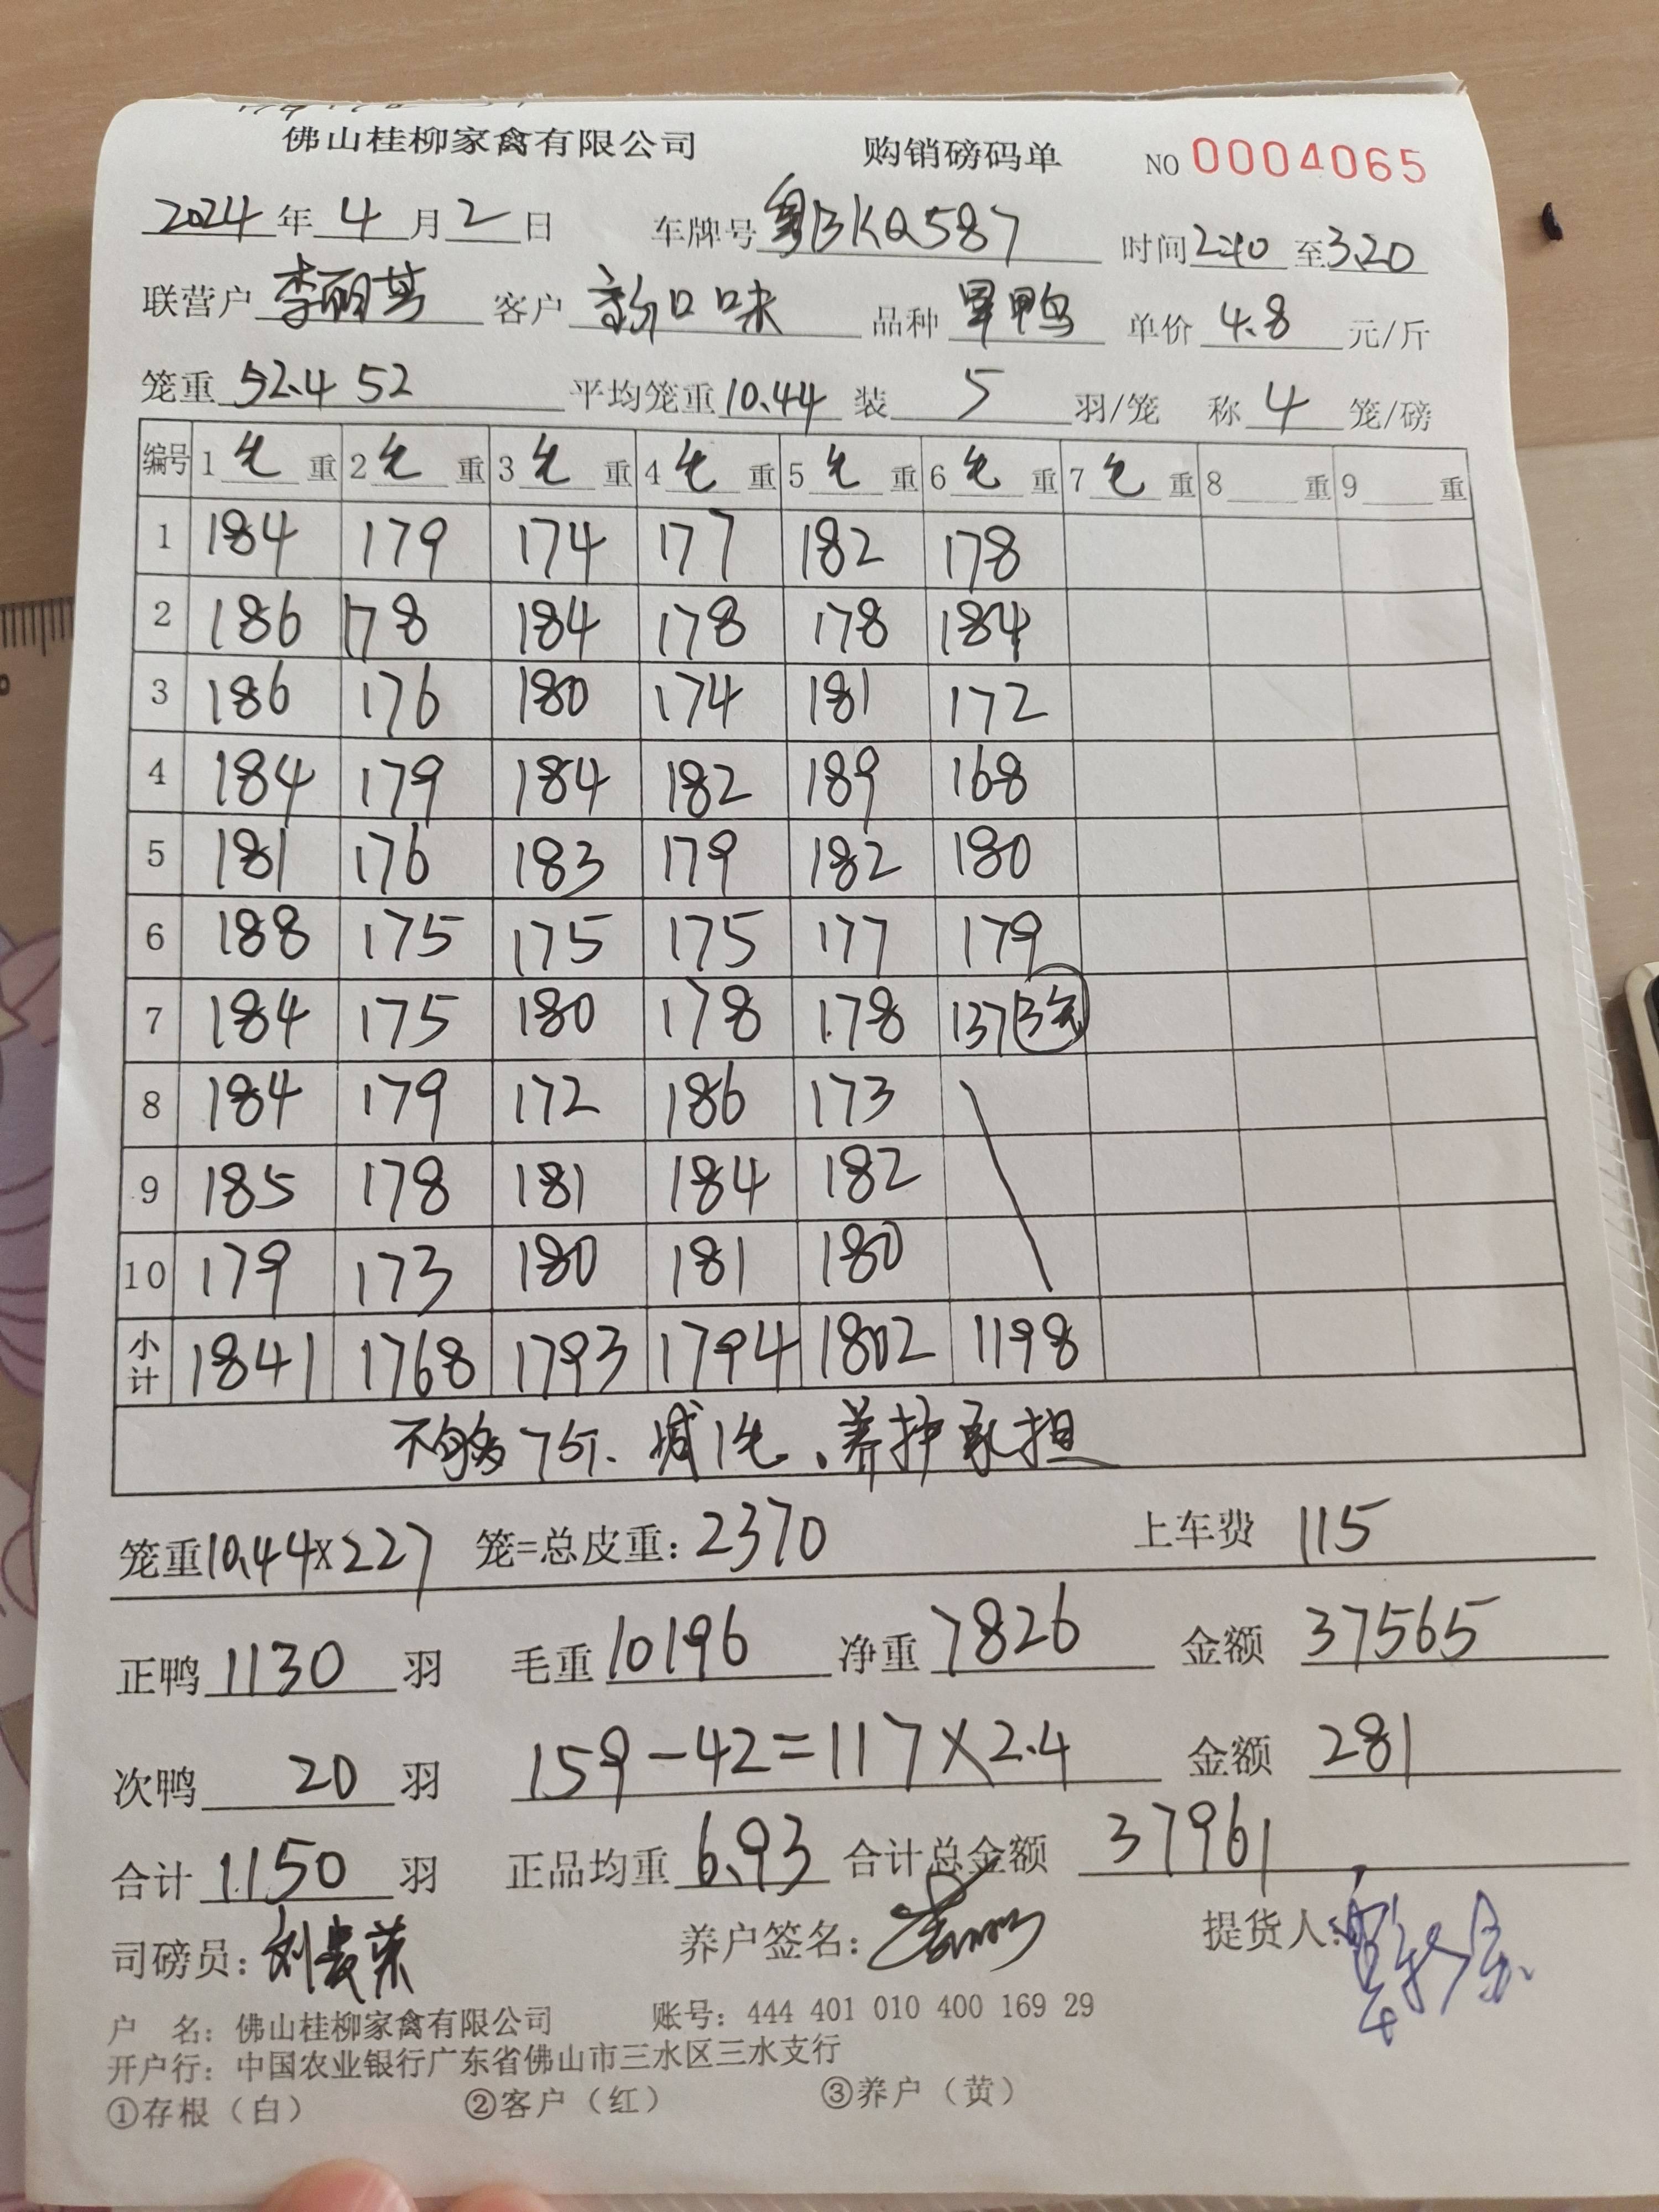 佛山桂柳家禽有限公司 购销磅码单 NO 0004065
2024年4月2日 车牌号粤BKQ587 时间2:40至3.20
联营户 客户 新口味 品种 单价4.8元/斤
笼重52.4 52 平均笼重10.44装5羽/笼 称4笼/磅
编号 1毛重 2毛重 3毛重 4毛重 5毛重 6毛重 7毛重 8重 9重
1 184 179 174 177 182 178
2 186 178 184 178 178 184
3 186 176 180 174 181 172
4 184 179 184 182 189 168
5 181 176 183 179 182 180
6 188 175 175 175 177 179
7 184 175 180 178 178 137
8 184 179 172 186 173
9 185 178 181 184 182
10 179 173 180 181 180
小计 1841 1768 1793 1794 1802 1198
不够7斤.减1毛、养护承担
笼重10.44×227笼=总皮重:2370 上车费 115
正鸭1130羽 毛重10196 净重7826 金额37565
次鸭20羽 159-42=117×2.4 金额281
合计1150羽 正品均重6.93 合计总金额37961
司磅员: 养户签名: 提货人:
户 名: 佛山桂柳家禽有限公司 账号: 444 401 010 400 169 29
开户行: 中国农业银行广东省佛山市三水区三水支行
①存根(白) ②客户(红) ③养户(黄)